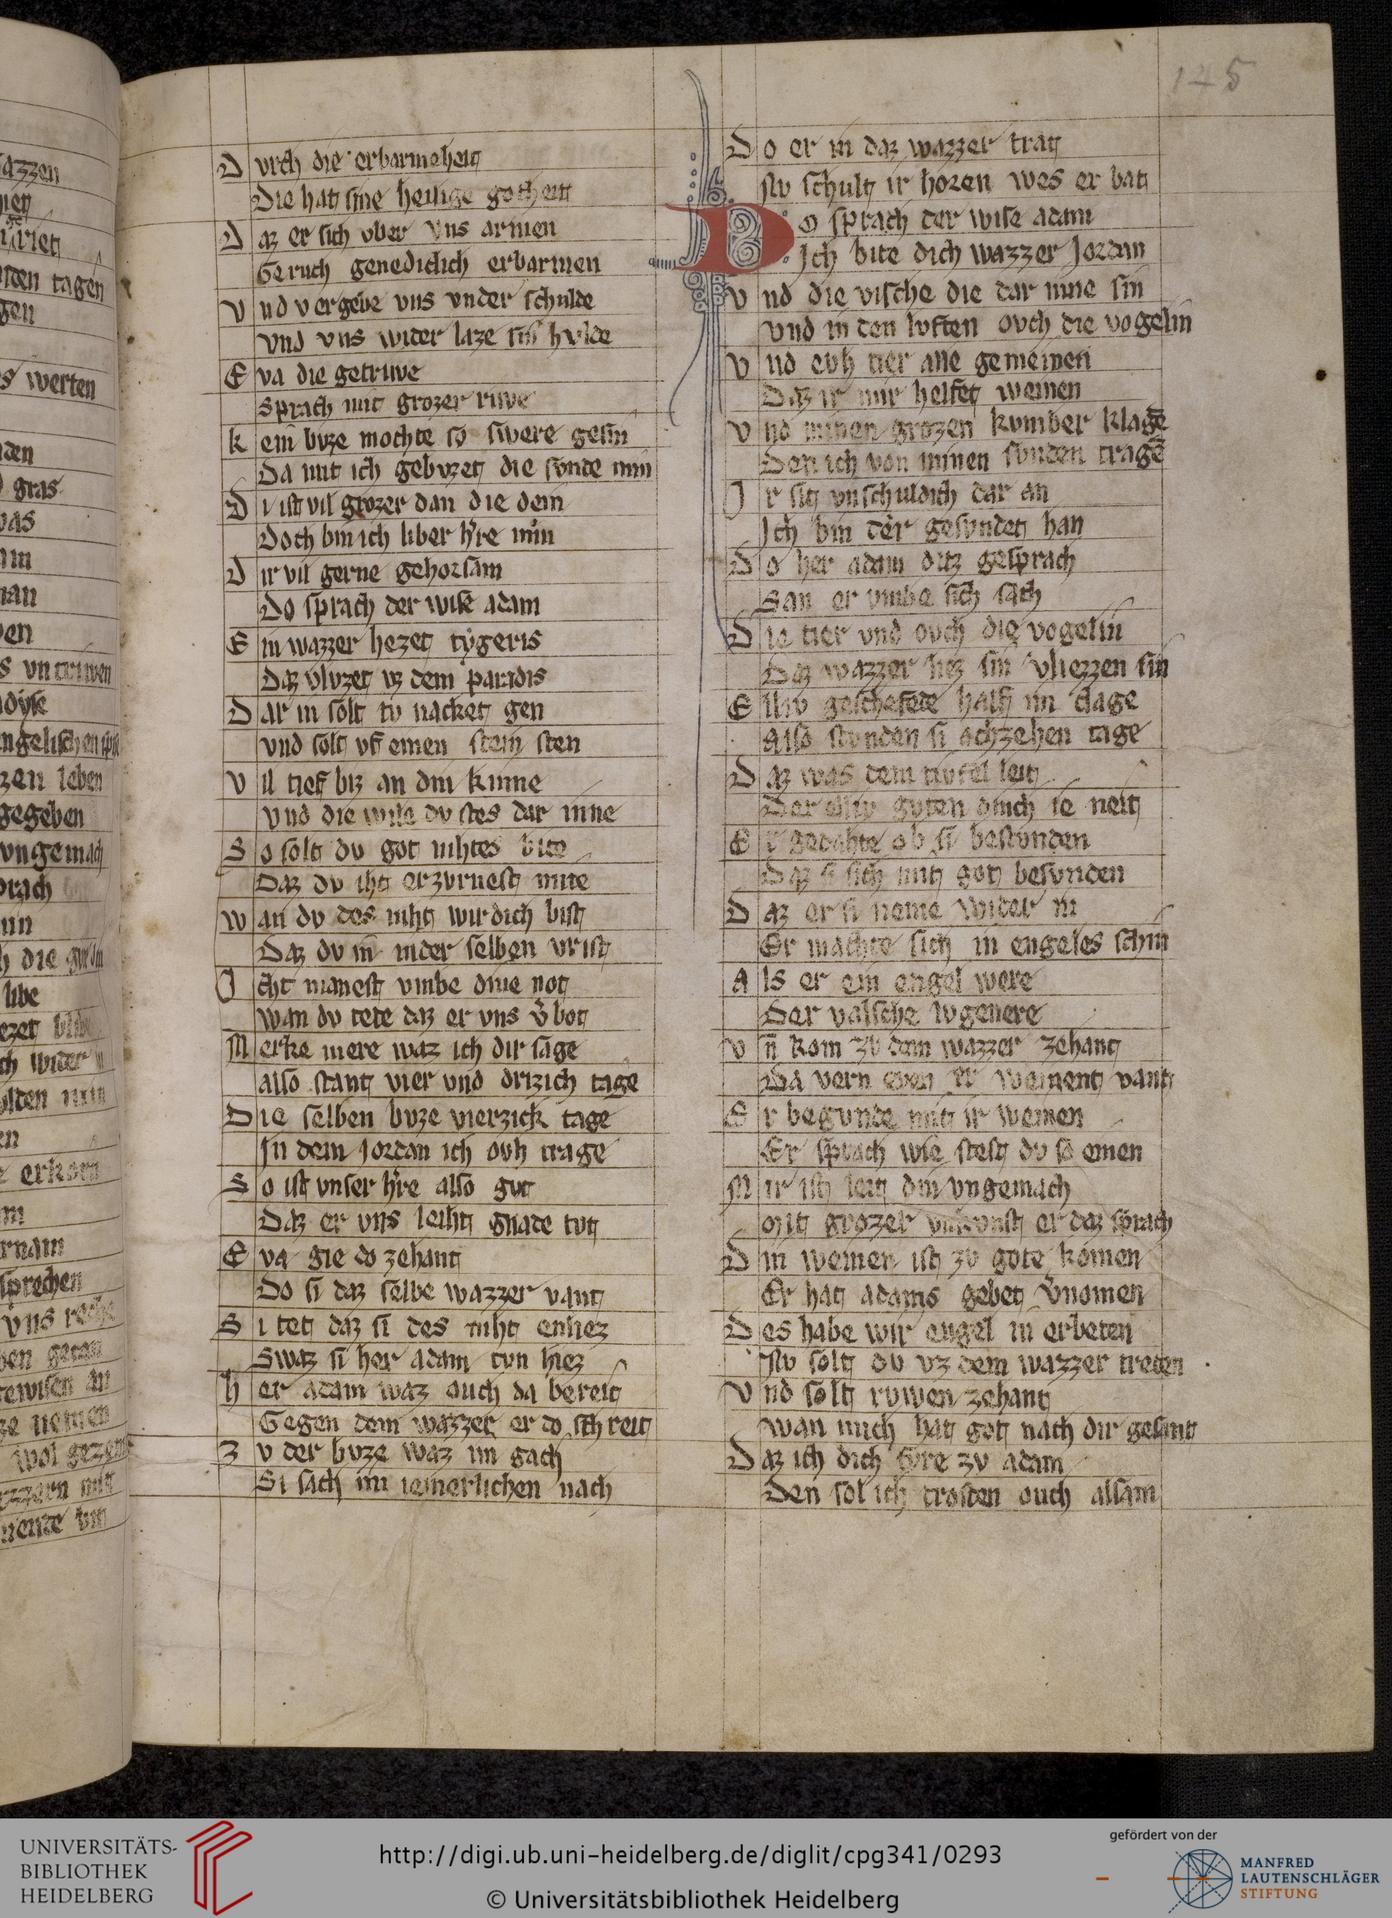 145
Durch die erbarmeheit
Die hat sine heilige gotheit
Daz er sich vber vns armen
Geruch genediclich erbarmen
Vnd vergebe vns vnder schulde
Vnd vns wider laze sin hulde
Eva die getruwe
Sprach mit grozer ruwe
kein buze mochte so swere gesin
Da mit ich gebuzet die sunde min
Di ist vil grozer dan die dein
Doch bin ich liber h're min
Dir vil gerne gehorsam
Do sprach der wise adam
Ein wazzer hezet tygeris
Daz vluzet vz dem paradis
Dar in solt tv nacket gen
vnd solt vf einen stein sten
Vil tief biz an din kinne
Vnd die wile dv stes dar inne
So solt dv got nihtes bite
Daz dv iht erzvrnest mite
wan dv des niht wirdich bist
Daz dv in inder selben vrist
Icht manest vmbe dine not
Wan dv tete daz er vns v'bot
Merke mere waz ich dir sage
also stant vier vnd drizich tage
Die selben buze vierzick tage
In dem Jordan ich ovh trage
So ist vnser h're also gut
Daz er vns leiht gnade tut
Eva gie do zehant
Do si daz selbe wazzer vant
Si tet daz si des niht enliez
Swaz si her adam tvn hiez
her adam waz ouch da bereit
Gegen dem wazzer er do schreit
Zv der buze waz im gach
Si sach im iemerlichen nach
Do er in daz wazzer trat
Nv schult ir horen wes er bat
Do sprach der wise adam
Ich bite dich wazzer Jordan
Vnd die vische die dar inne sin
Vnd in den luften ovch die vogelin
Vnd evh tier alle gemeinen
Daz ir mir helfet weinen
Vnd minen grozen kumber klagē
Den ich von minen sunden tragē
Ir sit vnschuldich dar an
Ich bin der gesundet han
Do her adam ditz gesprach
San er vmbe sich sach
Die tier vnd ovch die vogelin
Daz wazzer liez sin vliezzen sin
Elliv geschefede half im clage
Also stunden si achzehen tage
Daz was dem tivfel leit
Der elliv guten dinch ie neit
Er gedahte ob si bestunden
Daz si sich mit got besvnden
Daz er si neme wider in
Er machte sich in engeles schin
Als er ein engel were
Der valsche lvgenere
Vn̄ kom zv dem wazzer zehant
Da vern even er weinent vant
Er begunde mit ir weinen
Er sprach wie stest dv so einen
Mir ist leit din vngemach
Mit grozer vnkvnst er daz sprach
Din weinen ist zv gote komen
Er hat adams gebet v'nomen
Des habe wir engel in erbeten
Nv solt dv vz dem wazzer treten
Vnd solt ruwen zehant
Wan mich hat got nach dir gesant
Daz ich dich fvre zv adam
Den sol ich trosten ouch allsam
UNIVERSITÄTS-
BIBLIOTHEK
HEIDELBERG
http://digi.ub.uni-heidelberg.de/diglit/cpg341/0293
© Universitätsbibliothek Heidelberg
gefördert von der
MANFRED
LAUTENSCHLÄGER
STIFTUNG